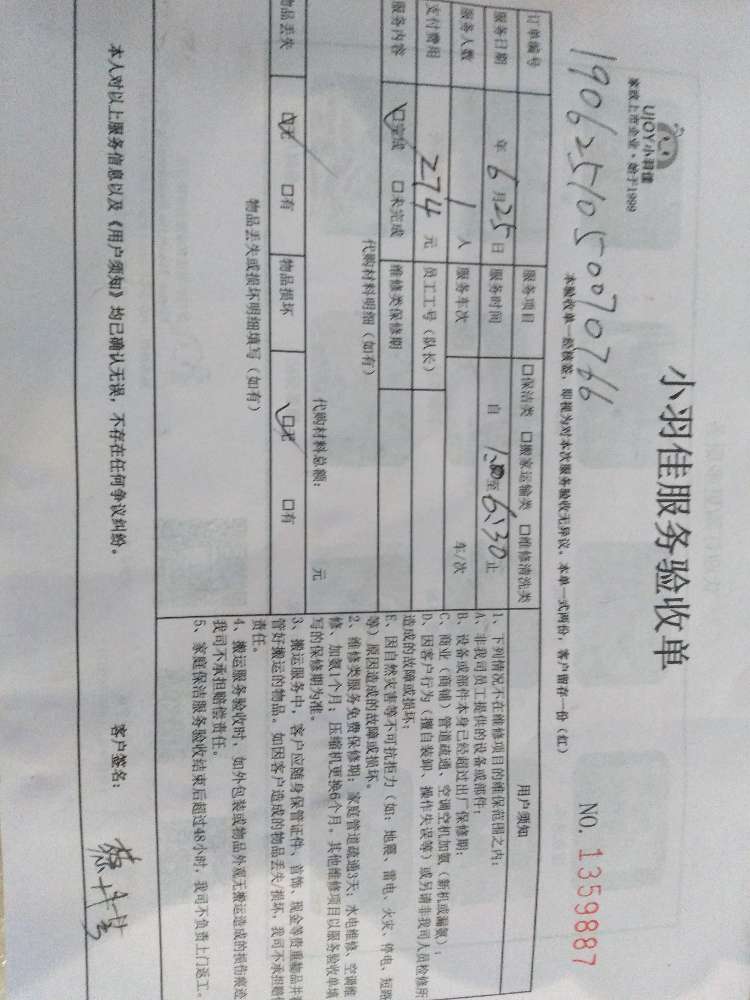 UJOY小羽佳
家政上市企业·始于1999
小羽佳服务验收单
1906251050070766
本验收单一经核签，即视为对本次服务验收无异议，本单一式两份，客户留存一份（红）
NO. 1359887
订单编号 服务项目 口保洁类 口搬家运输类 口维修清洗类
服务日期 年 6 月 25 日 服务时间 自 至 6:30 止
服务人数 1 人 服务车次 车/次
支付费用 274 元 员工工号（队长）
服务内容 口完成 口未完成 维修类保修期
代购材料明细（如有）
代购材料总额： 元
物品丢失 口无 口有 物品损坏 口无 口有
物品丢失或损坏明细填写（如有）
用户须知
1、下列情况不在维修项目的维保范围之内：
A、非我司员工提供的设备或部件；
B、设备或部件本身已经超过出厂保修期；
C、商业（商铺）管道疏通、空调空机加氨（新机或漏氨）；
D、因客户行为（擅自装卸、操作失误等）或另请非我司人员检修所
造成的故障或损坏；
E、因自然灾害等不可抗拒力（如：地震、雷电、火灾、停电、短路
等）原因造成的故障或损坏。
2、维修类服务免费保修期：家庭管道疏通3天；水电维修、空调维
修、加氨1个月；压缩机更换6个月。其他维修项目以服务验收单填
写的保修期为准。
3、搬运服务中，客户应随身保管证件、首饰、现金等贵重物品并
管好搬运的物品。如因客户造成的物品丢失/损坏，我司不承担赔
责任。
4、搬运服务验收时，如外包装或物品外观无搬运造成的损伤痕迹
我司不承担赔偿责任。
5、家庭保洁服务验收结束后超过48小时，我司不负责上门返工。
本人对以上服务信息以及《用户须知》均已确认无误，不存在任何争议纠纷。
客户签名：